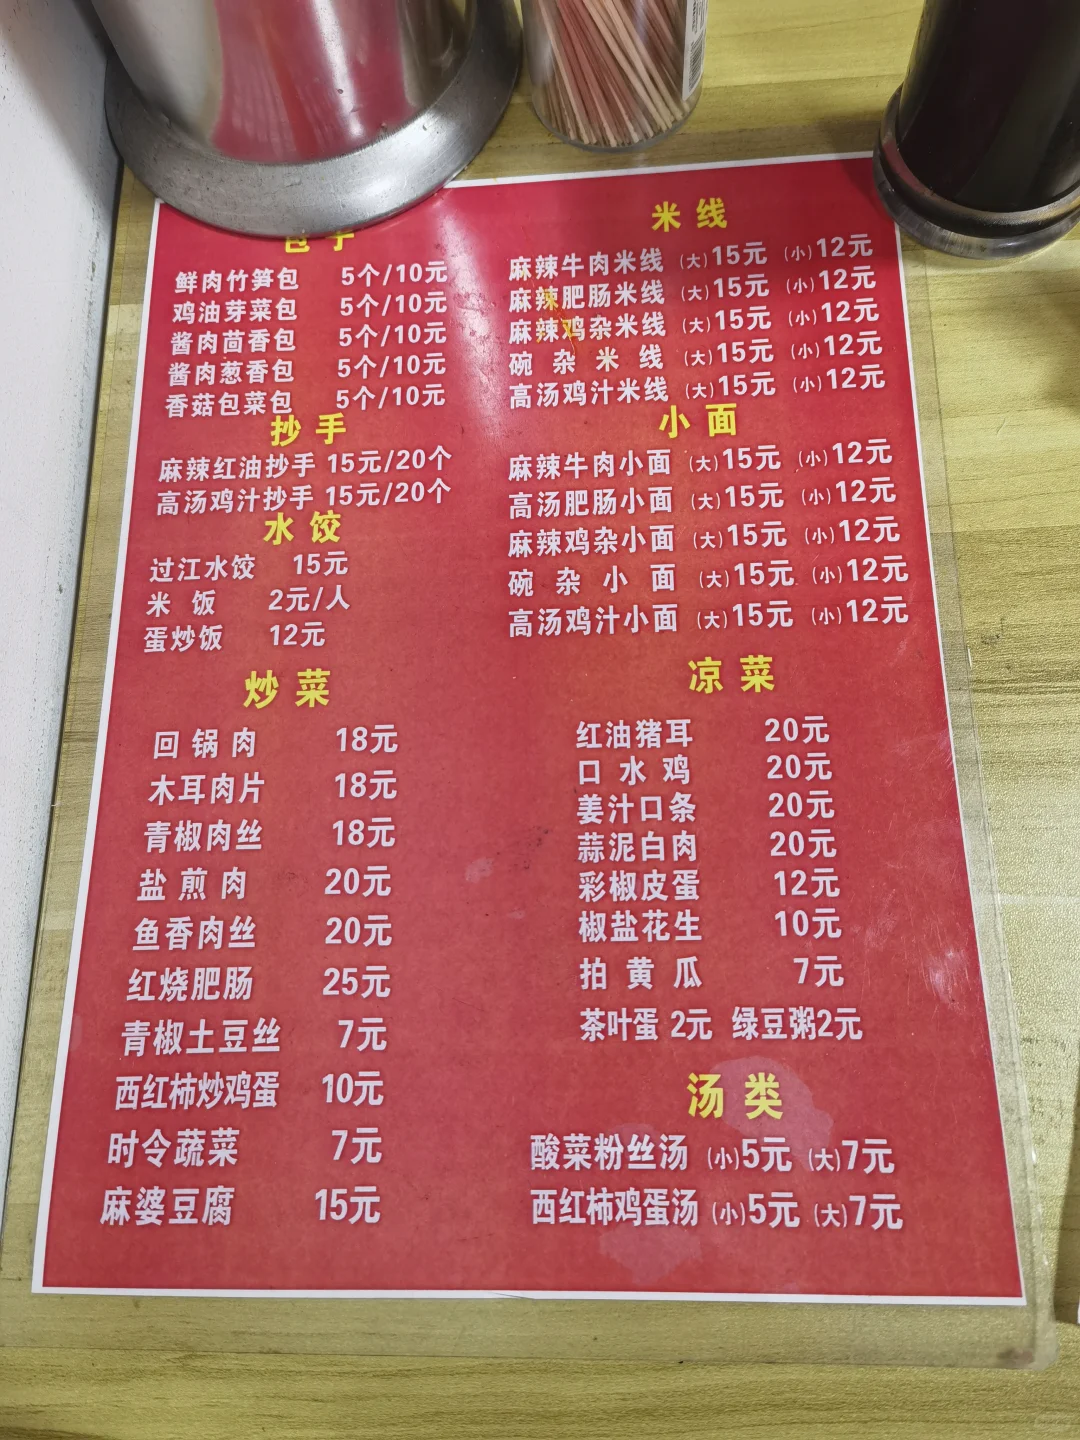 包子
鲜肉竹笋包 5个/10元
鸡油芽菜包 5个/10元
酱肉茴香包 5个/10元
酱肉葱香包 5个/10元
香菇包菜包 5个/10元
抄手
麻辣红油抄手 15元/20个
高汤鸡汁抄手 15元/20个
水饺
过江水饺 15元
米饭 2元/人
蛋炒饭 12元
炒菜
回锅肉 18元
木耳肉片 18元
青椒肉丝 18元
盐煎肉 20元
鱼香肉丝 20元
红烧肥肠 25元
青椒土豆丝 7元
西红柿炒鸡蛋 10元
时令蔬菜 7元
麻婆豆腐 15元
米线
麻辣牛肉米线 (大)15元 (小)12元
麻辣肥肠米线 (大)15元 (小)12元
麻辣鸡杂米线 (大)15元 (小)12元
碗杂米线 (大)15元 (小)12元
高汤鸡汁米线 (大)15元 (小)12元
小面
麻辣牛肉小面 (大)15元 (小)12元
高汤肥肠小面 (大)15元 (小)12元
麻辣鸡杂小面 (大)15元 (小)12元
碗杂小面 (大)15元 (小)12元
高汤鸡汁小面 (大)15元 (小)12元
凉菜
红油猪耳 20元
口水鸡 20元
姜汁口条 20元
蒜泥白肉 20元
彩椒皮蛋 12元
椒盐花生 10元
拍黄瓜 7元
茶叶蛋 2元 绿豆粥2元
汤类
酸菜粉丝汤 (小)5元 (大)7元
西红柿鸡蛋汤 (小)5元 (大)7元